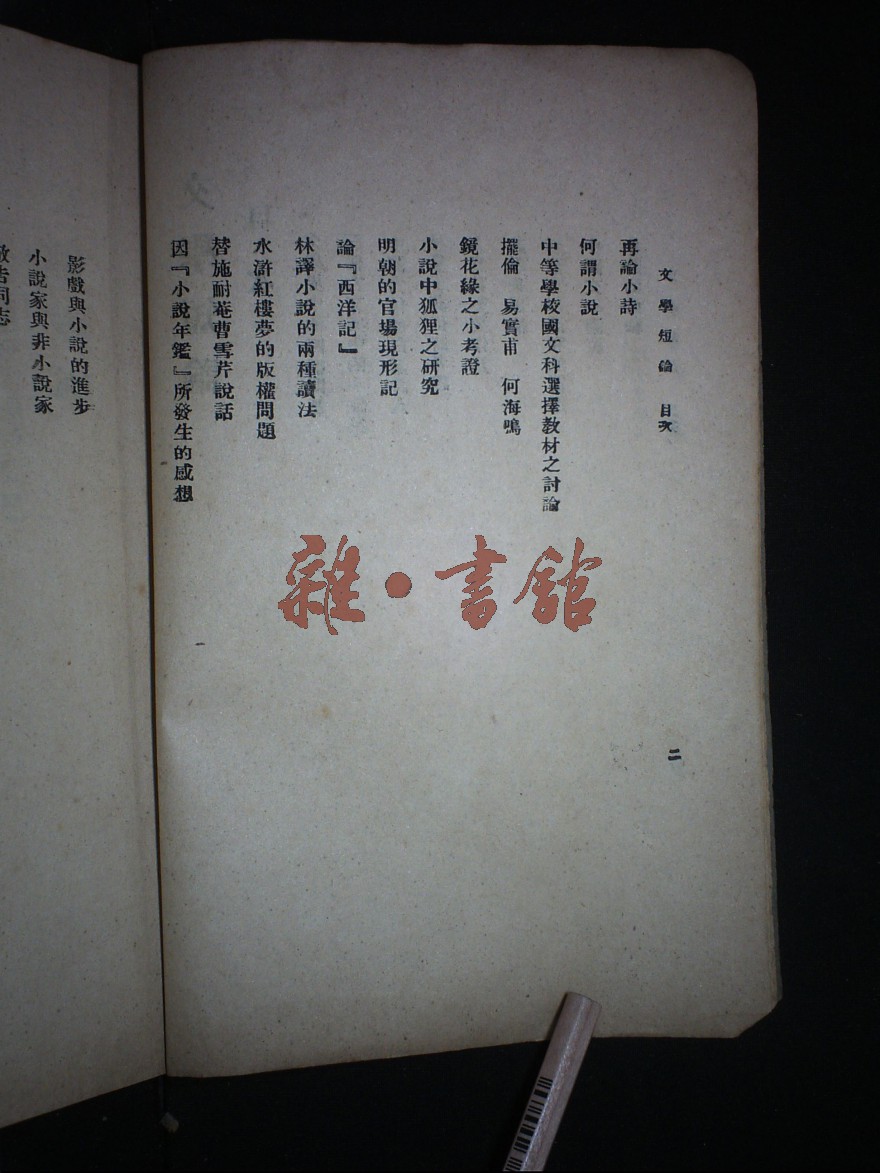 文學短論 目次
再論小詩
何謂小說
中等學校國文科選擇教材之討論
擺倫 易實甫 何海鳴
鏡花緣之小考證
小說中狐狸之研究
明朝的官場現形記
論『西洋記』
林譯小說的兩種讀法
水滸紅樓夢的版權問題
替施耐菴曹雪芹說話
因『小說年鑑』所發生的感想
二
影戲與小說的進步
小說家與非小說家
敬告同志
雜·書館